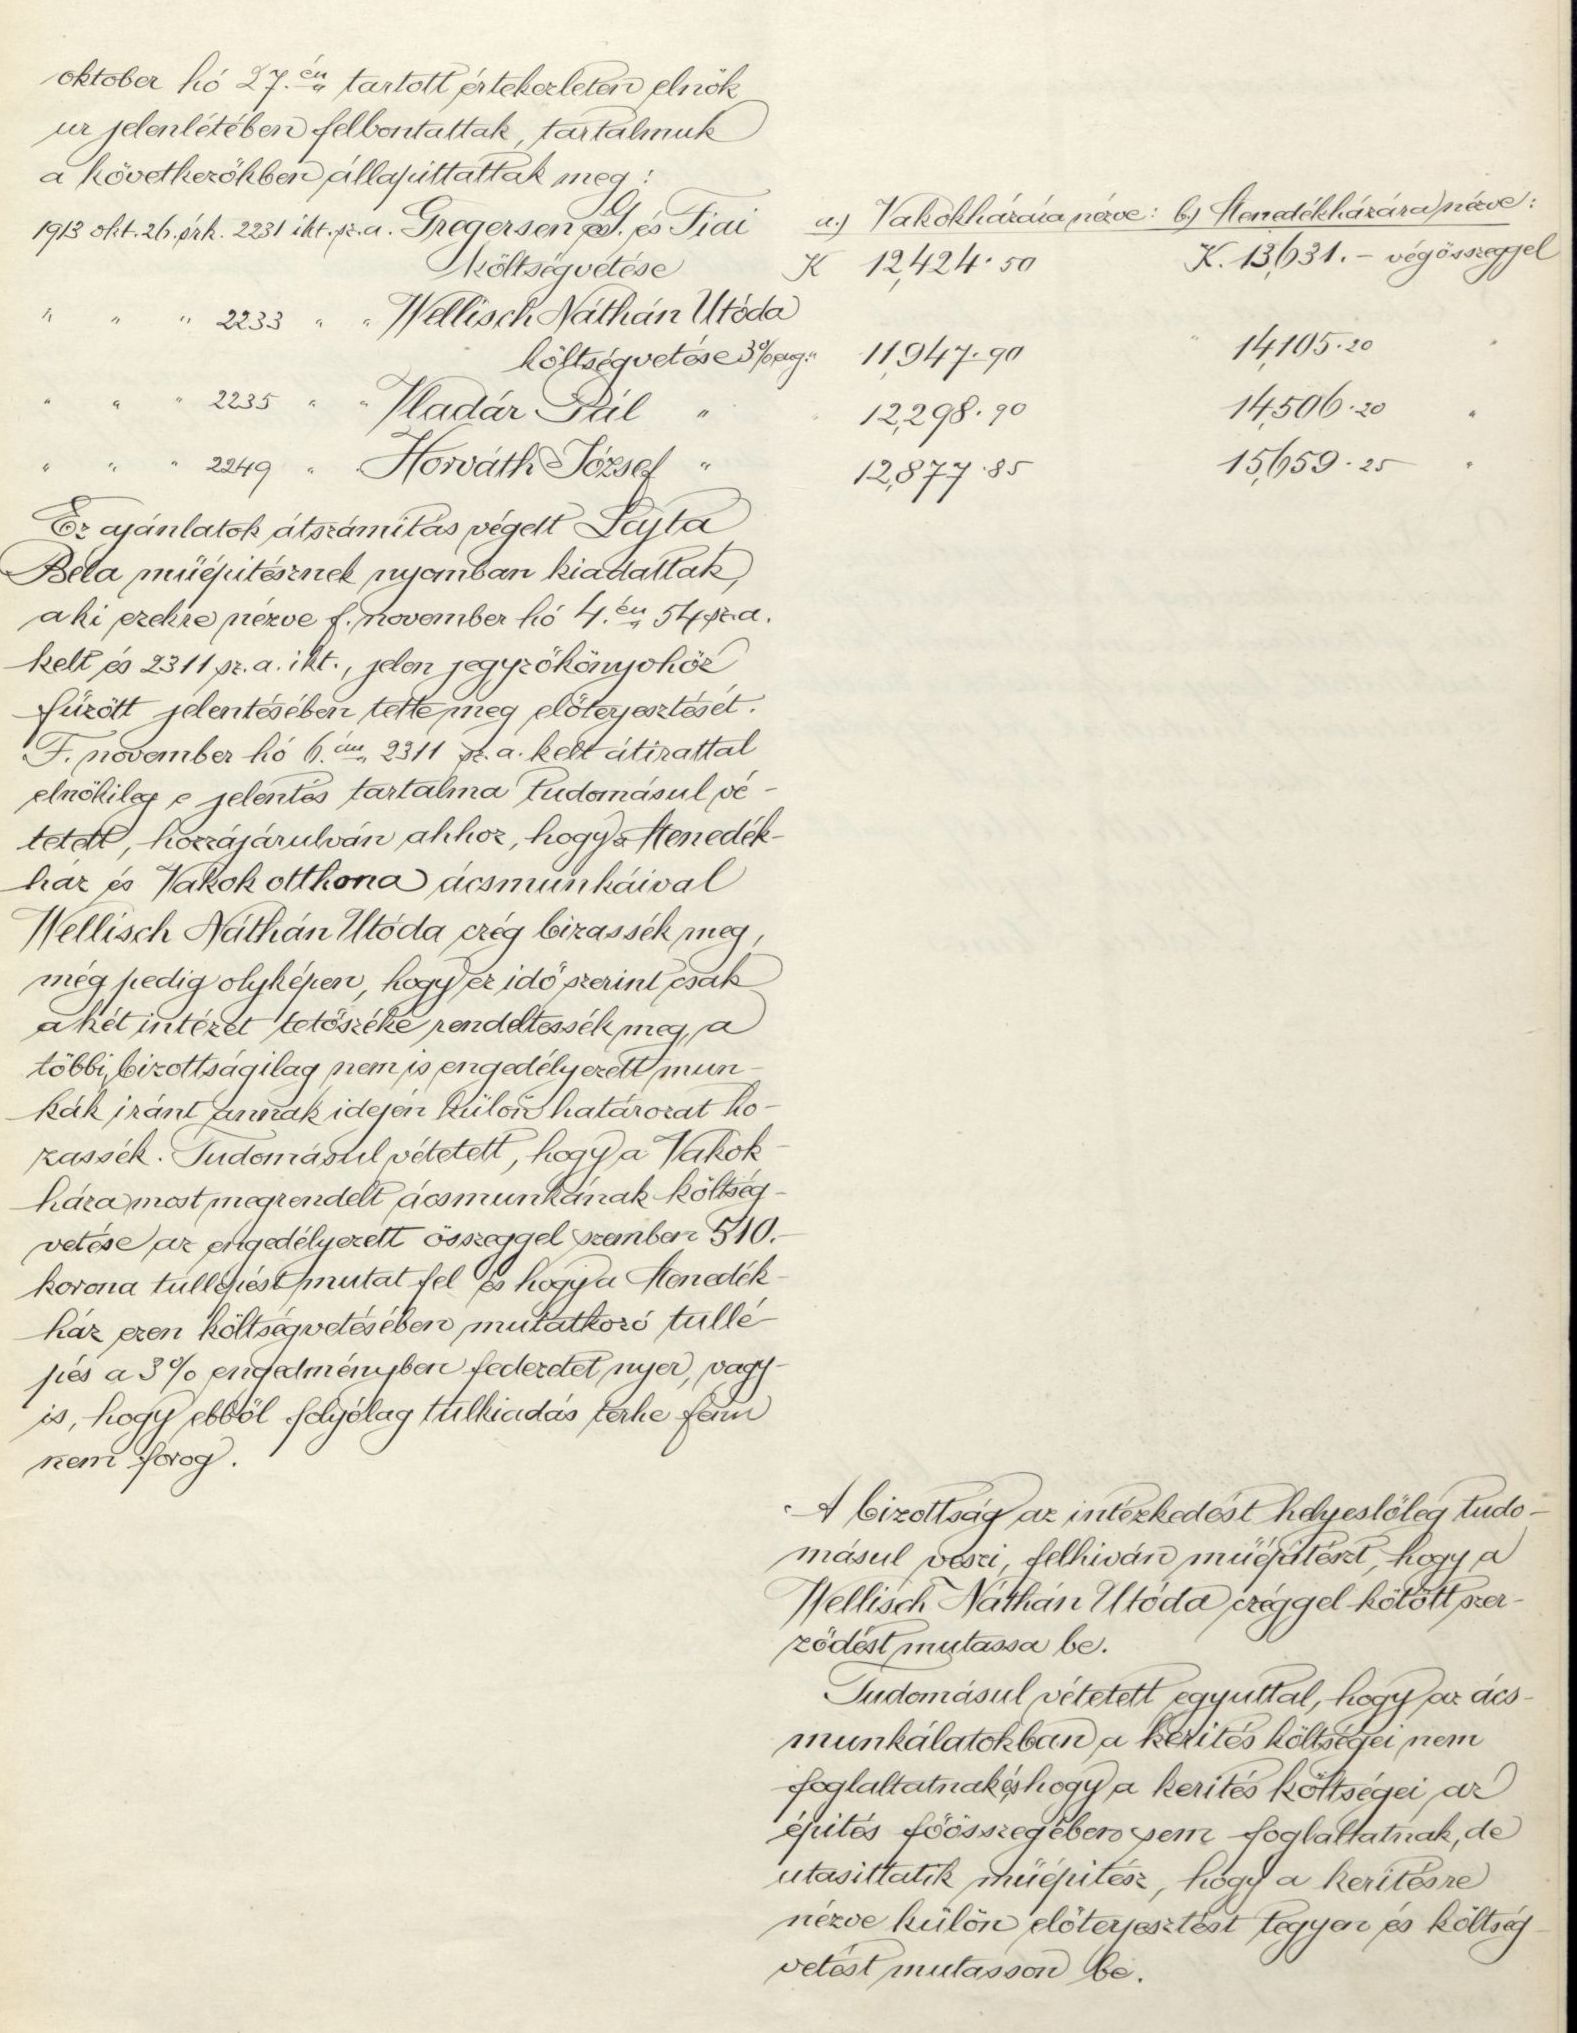 oktober hó 27.én tartott értekezleten elnök
ur jelenlétében felbontattak, tartalmuk
a következőkben állapittattak meg:
a.) Vakokházára nézve: b.) Menedékházára nézve:
1913 okt. 26. érk. 2231 ikt. sz. a. Gregersen G. és Fiai
költségvetése K 12,424.50 K. 13,631.- végösszeggel
" " " 2233 " " Wellisch Náthán Utóda
költségvetése 3% eng. " 11,947.90 " 14,105.20 "
" " " 2235 " " Vladár Pál " " 12,298.90 14,506.20 "
" " " 2249 " " Horváth József " 12,877.85 15,659.25 "
Ez ajánlatok átszámitás végett Lajta
Béla müépitésznek nyomban kiadattak,
aki ezekre nézve f. november hó 4.én 54 sz. a.
kelt és 2311 sz. a. ikt., jelen jegyzőkönyvhöz
füzött jelentésében tette meg előterjesztését.
F. november hó 6.án 2311 sz. a. kelt átirattal
elnökileg e jelentés tartalma tudomásul vé-
tetett, hozzájárulván ahhoz, hogy a Menedék-
ház és Vakok otthona ácsmunkáival
Wellisch Náthán Utóda czég bizassék meg,
még pedig olyképen, hogy ez idő szerint csak
a két intézet tetőszéke rendeltessék meg, a
többi, bizottságilag nem is engedélyezett mun-
kák iránt annak idején külön határozat ho-
zassék. Tudomásul vétetett, hogy a Vakok
háza most megrendelt ácsmunkának költség-
vetése az engedélyezett összeggel szemben 510.-
korona tullépést mutat fel és hogy a Menedék-
ház ezen költségvetésében mutatkozó tullé-
pés a 3% engedményben fedezetet nyer, vagy-
is, hogy ebből folyólag tulkiadás terhe fenn
nem forog.
A bizottság az intézkedést helyeslőleg tudo-
másul veszi, felhiván müépitészt, hogy a
Wellisch Náthán Utóda czéggel kötött szer-
ződést mutassa be.
Tudomásul vétetett egyuttal, hogy az ács-
munkálatokban a kerités költségei nem
foglaltatnak és hogy a kerités költségei az
épités főösszegében sem foglaltatnak, de
utasittatik müépitész, hogy a keritésre
nézve külön előterjesztést tegyen és költség-
vetést mutasson be.